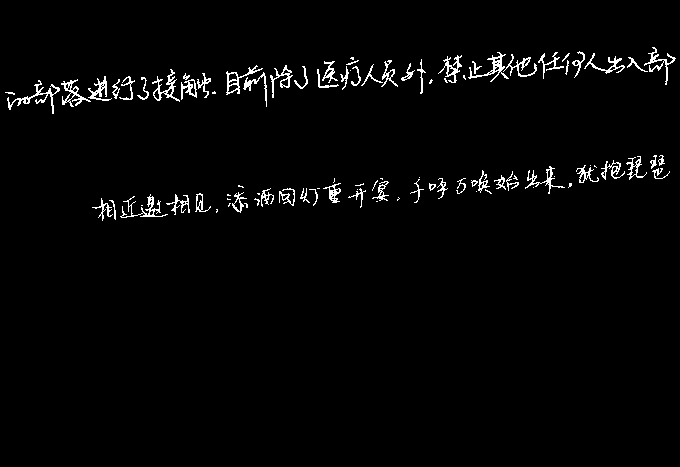 的部落进行了接触.目前除了医疗人员外,禁止其他任何人出入部
相近邀相见,添酒回灯重开宴,千呼万唤始出来,犹抱琵琶